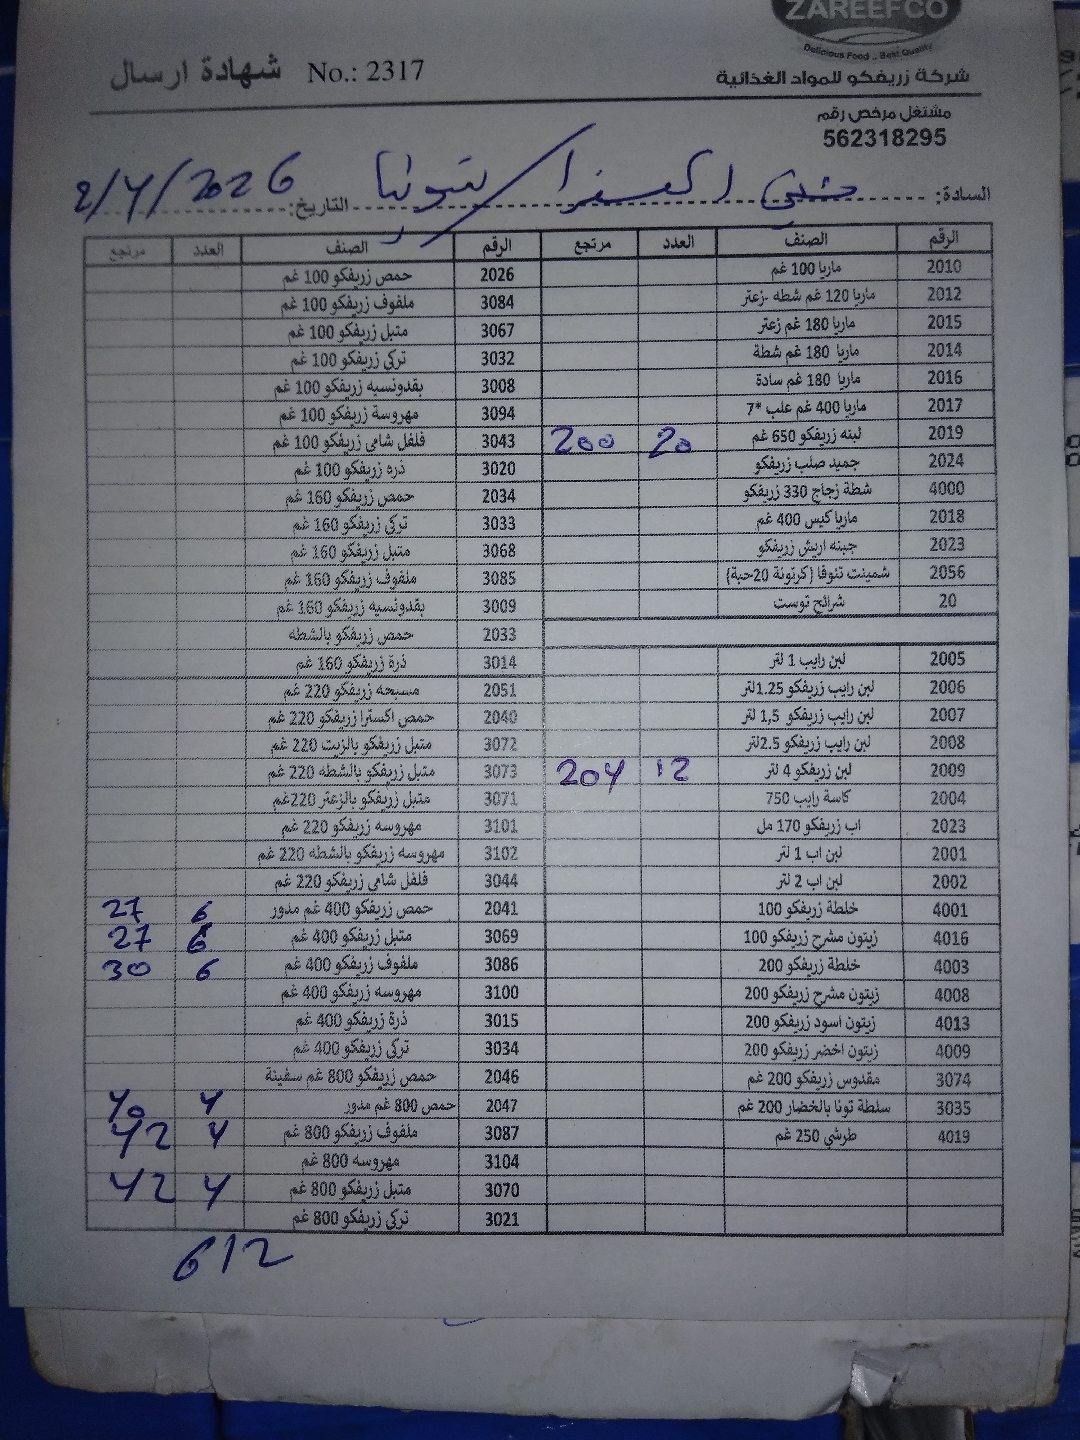 ZAREEFCO
Delicious Food .. Best Quality
شركة زريفكو للمواد الغذائية
شهادة ارسال No.: 2317
مشتغل مرخص رقم
562318295
السادة: / بتونيا التاريخ: 2/4/2026
الرقم الصنف العدد مرتجع الرقم الصنف العدد مرتجع
2010 ماريا 100 غم 2026 حمص زريفكو 100 غم
2012 ماريا 120 غم شطه -زعتر 3084 ملفوف زريفكو 100 غم
2015 ماريا 180 غم زعتر 3067 متبل زريفكو 100 غم
2014 ماريا 180 غم شطة 3032 تركي زريفكو 100 غم
2016 ماريا 180 غم سادة 3008 بقدونسيه زريفكو 100 غم
2017 ماريا 400 غم علب *7 3094 مهروسة زريفكو 100 غم
2019 لبنه زريفكو 650 غم 20 200 3043 فلفل شامي زريفكو 100 غم
2024 جميد صلب زريفكو 3020 ذره زريفكو 100 غم
4000 شطة زجاج 330 زريفكو 2034 حمص زريفكو 160 غم
2018 ماريا كيس 400 غم 3033 تركي زريفكو 160 غم
2023 جبنه اريش زريفكو 3068 متبل زريفكو 160 غم
2056 شمينت تنوفا (كرتونة 20حبة) 3085 ملفوف زريفكو 160 غم
20 شرائح توست 3009 بقدونسيه زريفكو 160 غم
2033 حمص زريفكو بالشطه
2005 لبن رايب 1 لتر 3014 ذرة زريفكو 160 غم
2006 لبن رايب زريفكو 1.25لتر 2051 مسبحه زريفكو 220 غم
2007 لبن رايب زريفكو 1,5 لتر 2040 حمص اكسترا زريفكو 220 غم
2008 لبن رايب زريفكو 2.5لتر 3072 متبل زريفكو بالزيت 220 غم
2009 لبن زريفكو 4 لتر 12 204 3073 متبل زريفكو بالشطه 220 غم
2004 كاسة رايب 750 3071 متبل زريفكو بالزعتر 220غم
2023 اب زريفكو 170 مل 3101 مهروسه زريفكو 220 غم
2001 لبن اب 1 لتر 3102 مهروسه زريفكو بالشطه 220 غم
2002 لبن اب 2 لتر 3044 فلفل شامي زريفكو 220 غم
4001 خلطة زريفكو 100 2041 حمص زريفكو 400 غم مدور 6 27
4016 زيتون مشرح زريفكو 100 3069 متبل زريفكو 400 غم 6 27
4003 خلطة زريفكو 200 3086 ملفوف زريفكو 400 غم 6 30
4008 زيتون مشرح زريفكو 200 3100 مهروسه زريفكو 400 غم
4013 زيتون اسود زريفكو 200 3015 ذرة زريفكو 400 غم
4009 زيتون اخضر زريفكو 200 3034 تركي زريفكو 400 غم
3074 مقدوس زريفكو 200 غم 2046 حمص زريفكو 800 غم سفينة
3035 سلطة تونا بالخضار 200 غم 2047 حمص 800 غم مدور 4 40
4019 طرشي 250 غم 3087 ملفوف زريفكو 800 غم 4 42
3104 مهروسه 800 غم
3070 متبل زريفكو 800 غم 4 42
3021 تركي زريفكو 800 غم
612